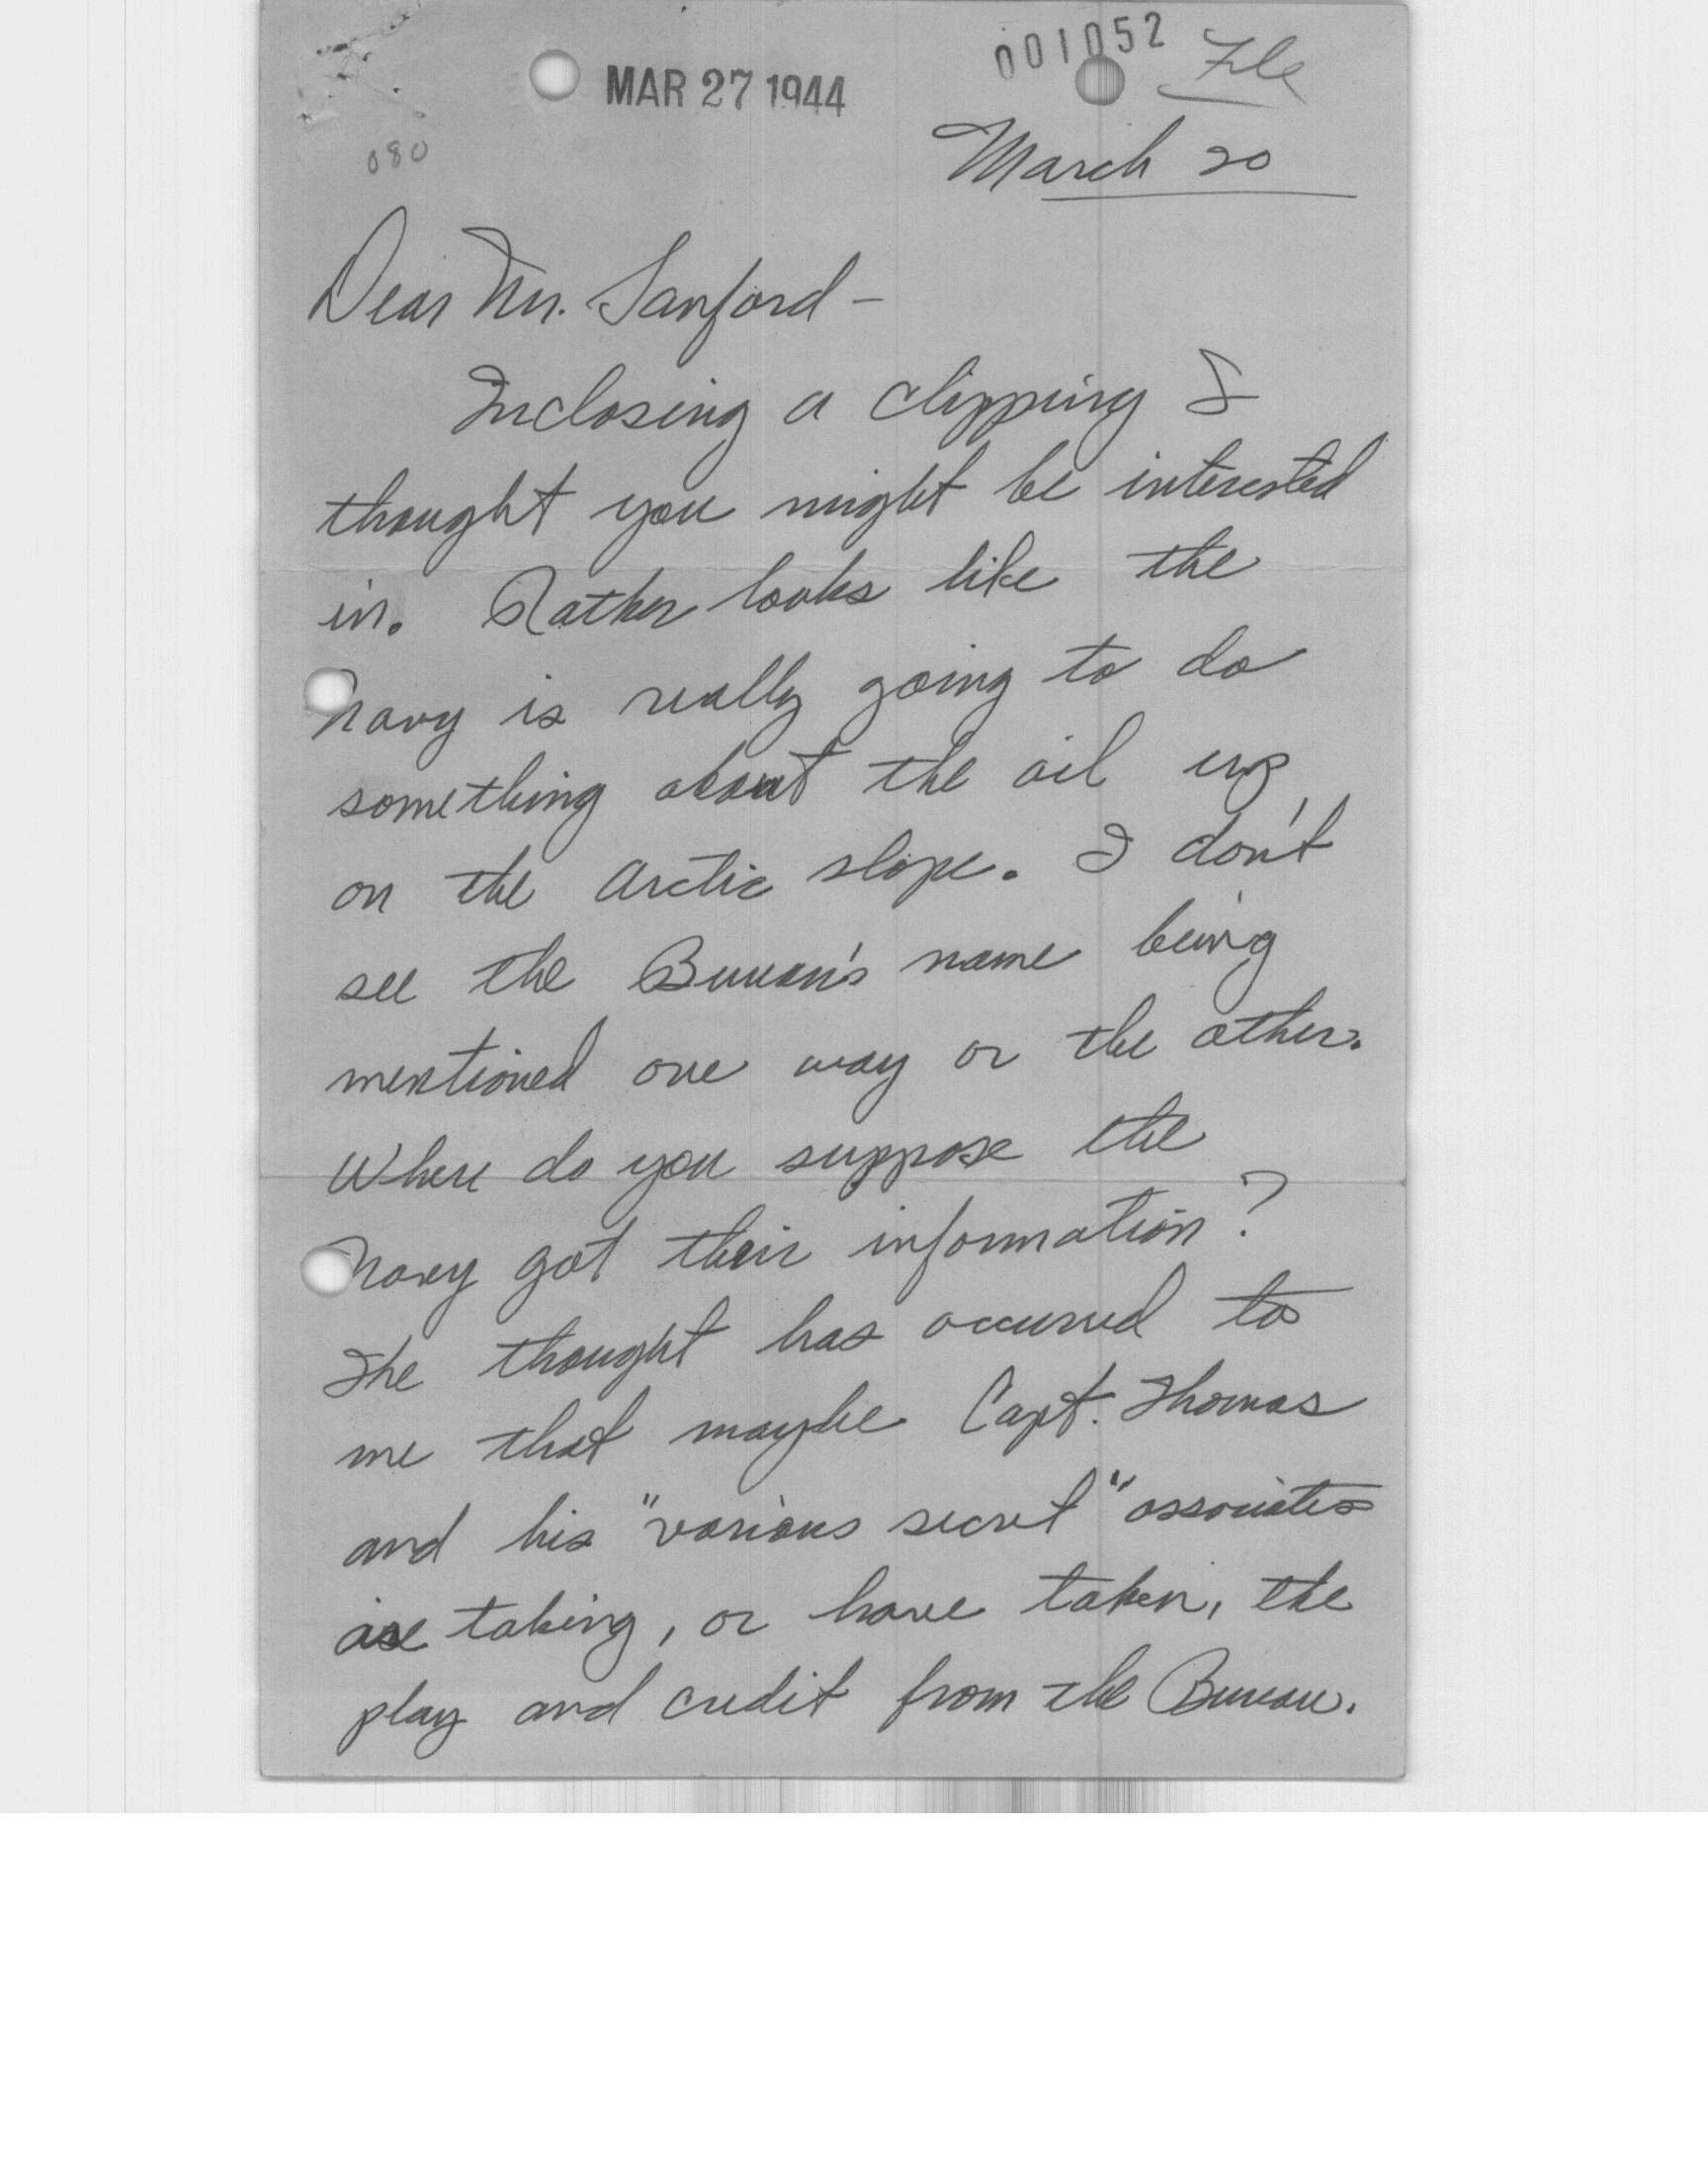 001052 File
MAR 27 1944
080
March 20
Dear Mr. Sanford -
Inclosing a clipping I
thought you might be interested
in. Rather looks like the
Navy is really going to do
something about the oil up
on the Arctic slope. I don't
see the Bureau's name being
mentioned one way or the other.
Where do you suppose the
Navy got their information?
The thought has occurred to
me that maybe Capt. Thomas
and his "various secret" associates
are taking, or have taken, the
play and credit from the Bureau.